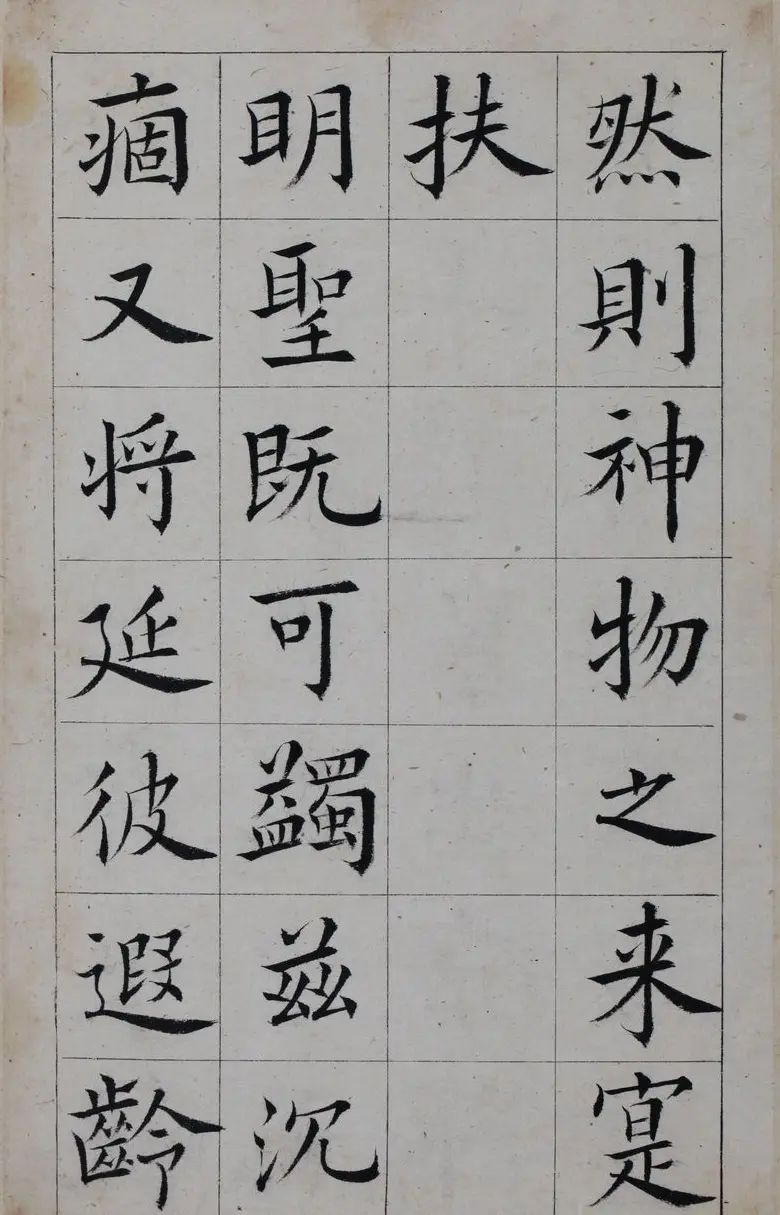 然則神物之来寔
扶
明聖既可蠲兹沉
痼又将延彼遐齡